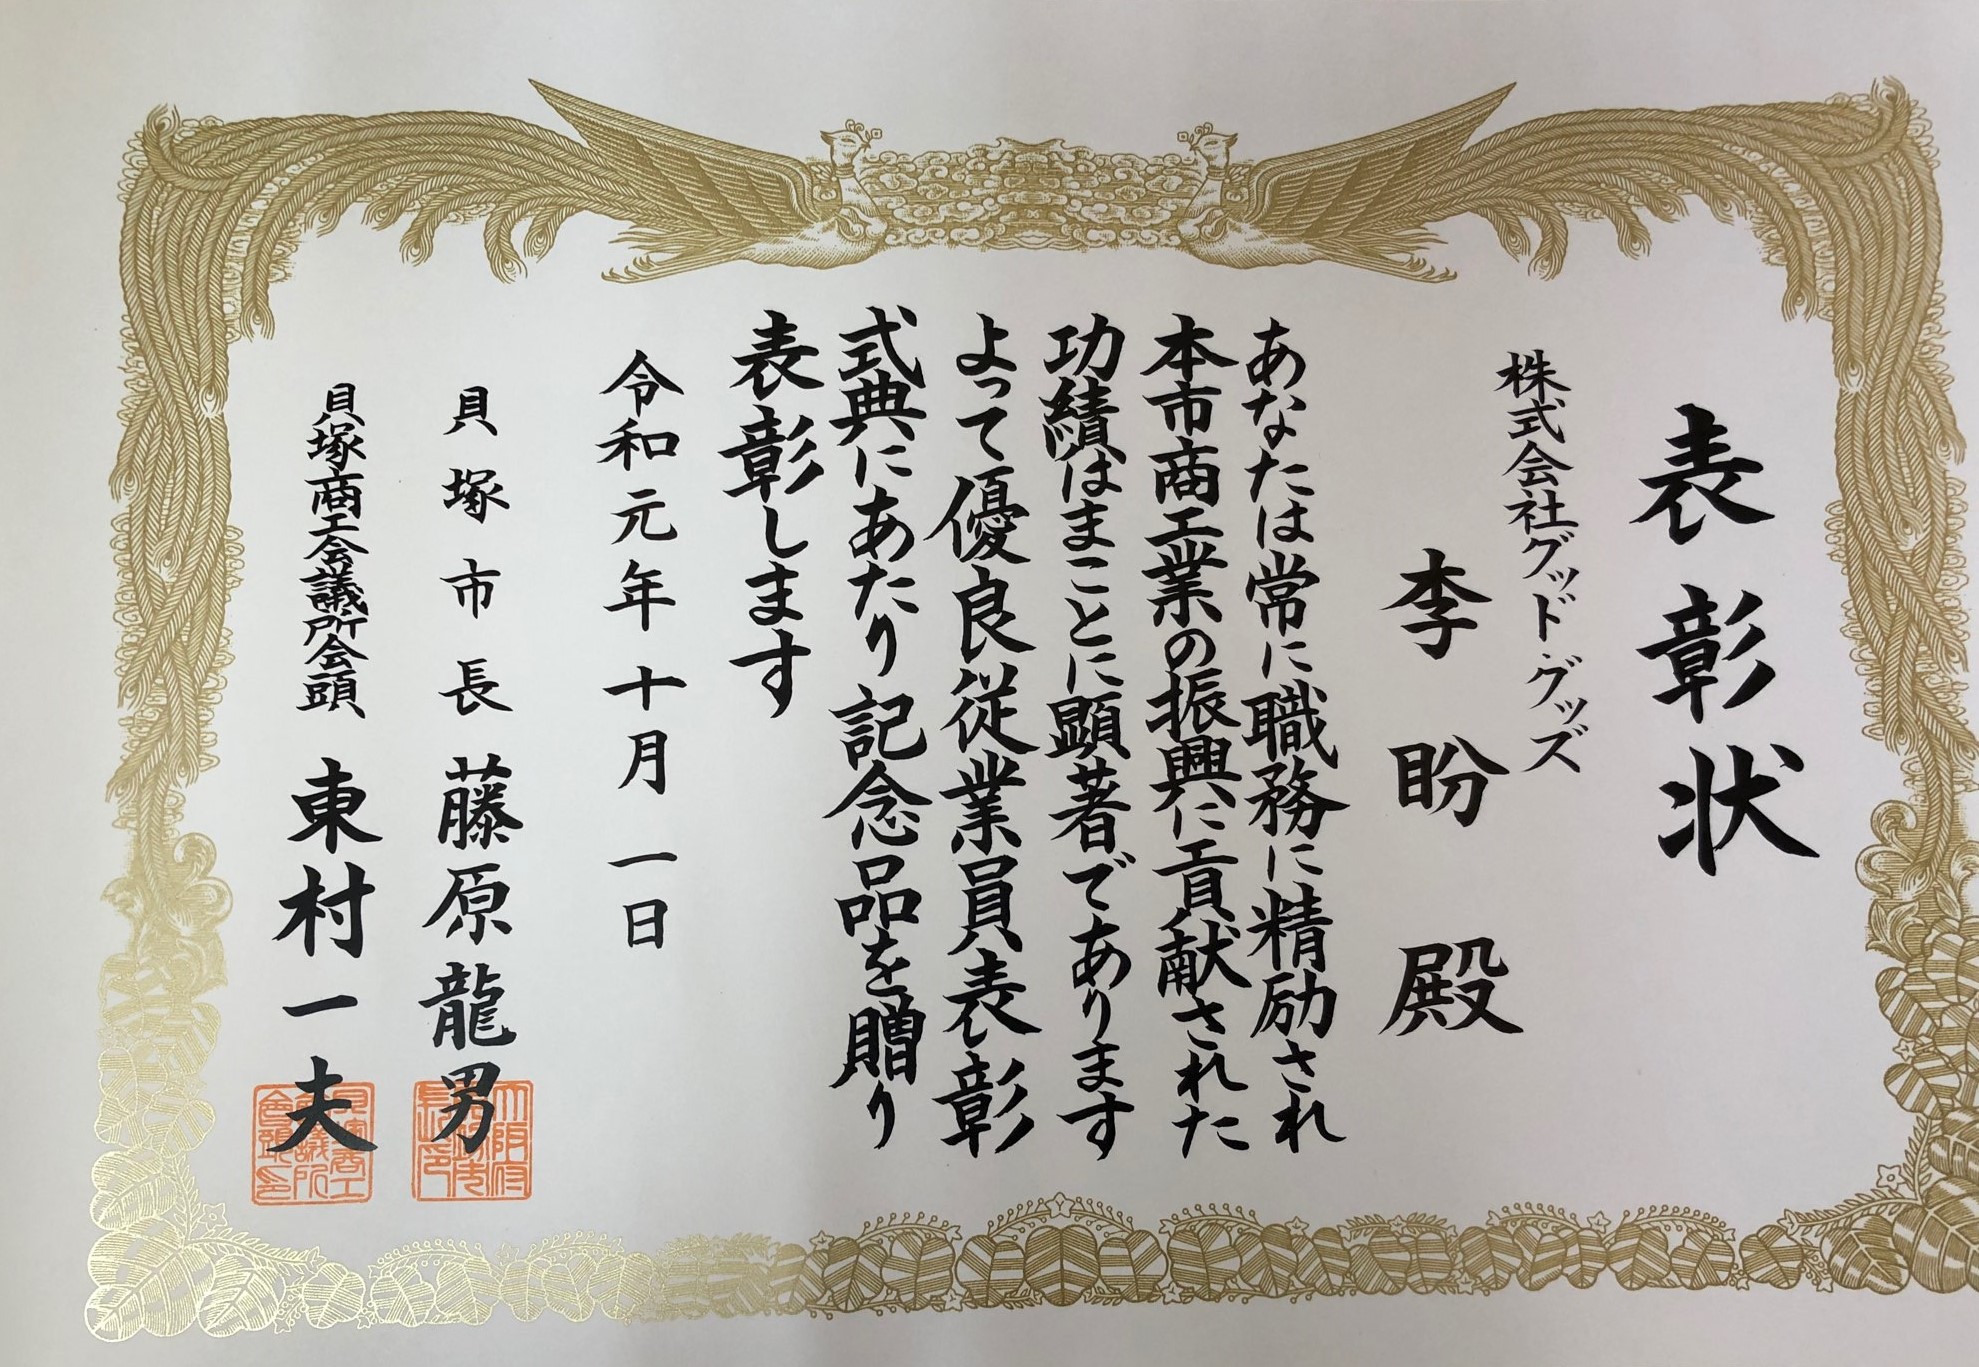 表彰状
株式会社グッド・グッズ
李盼殿
あなたは常に職務に精励され
本市商工業の振興に貢献された
功績はまことに顕著であります
よって優良従業員表彰
式典にあたり記念品を贈り
表彰します
令和元年十月一日
貝塚市長 藤原龍男
貝塚商工会議所会頭 東村一夫